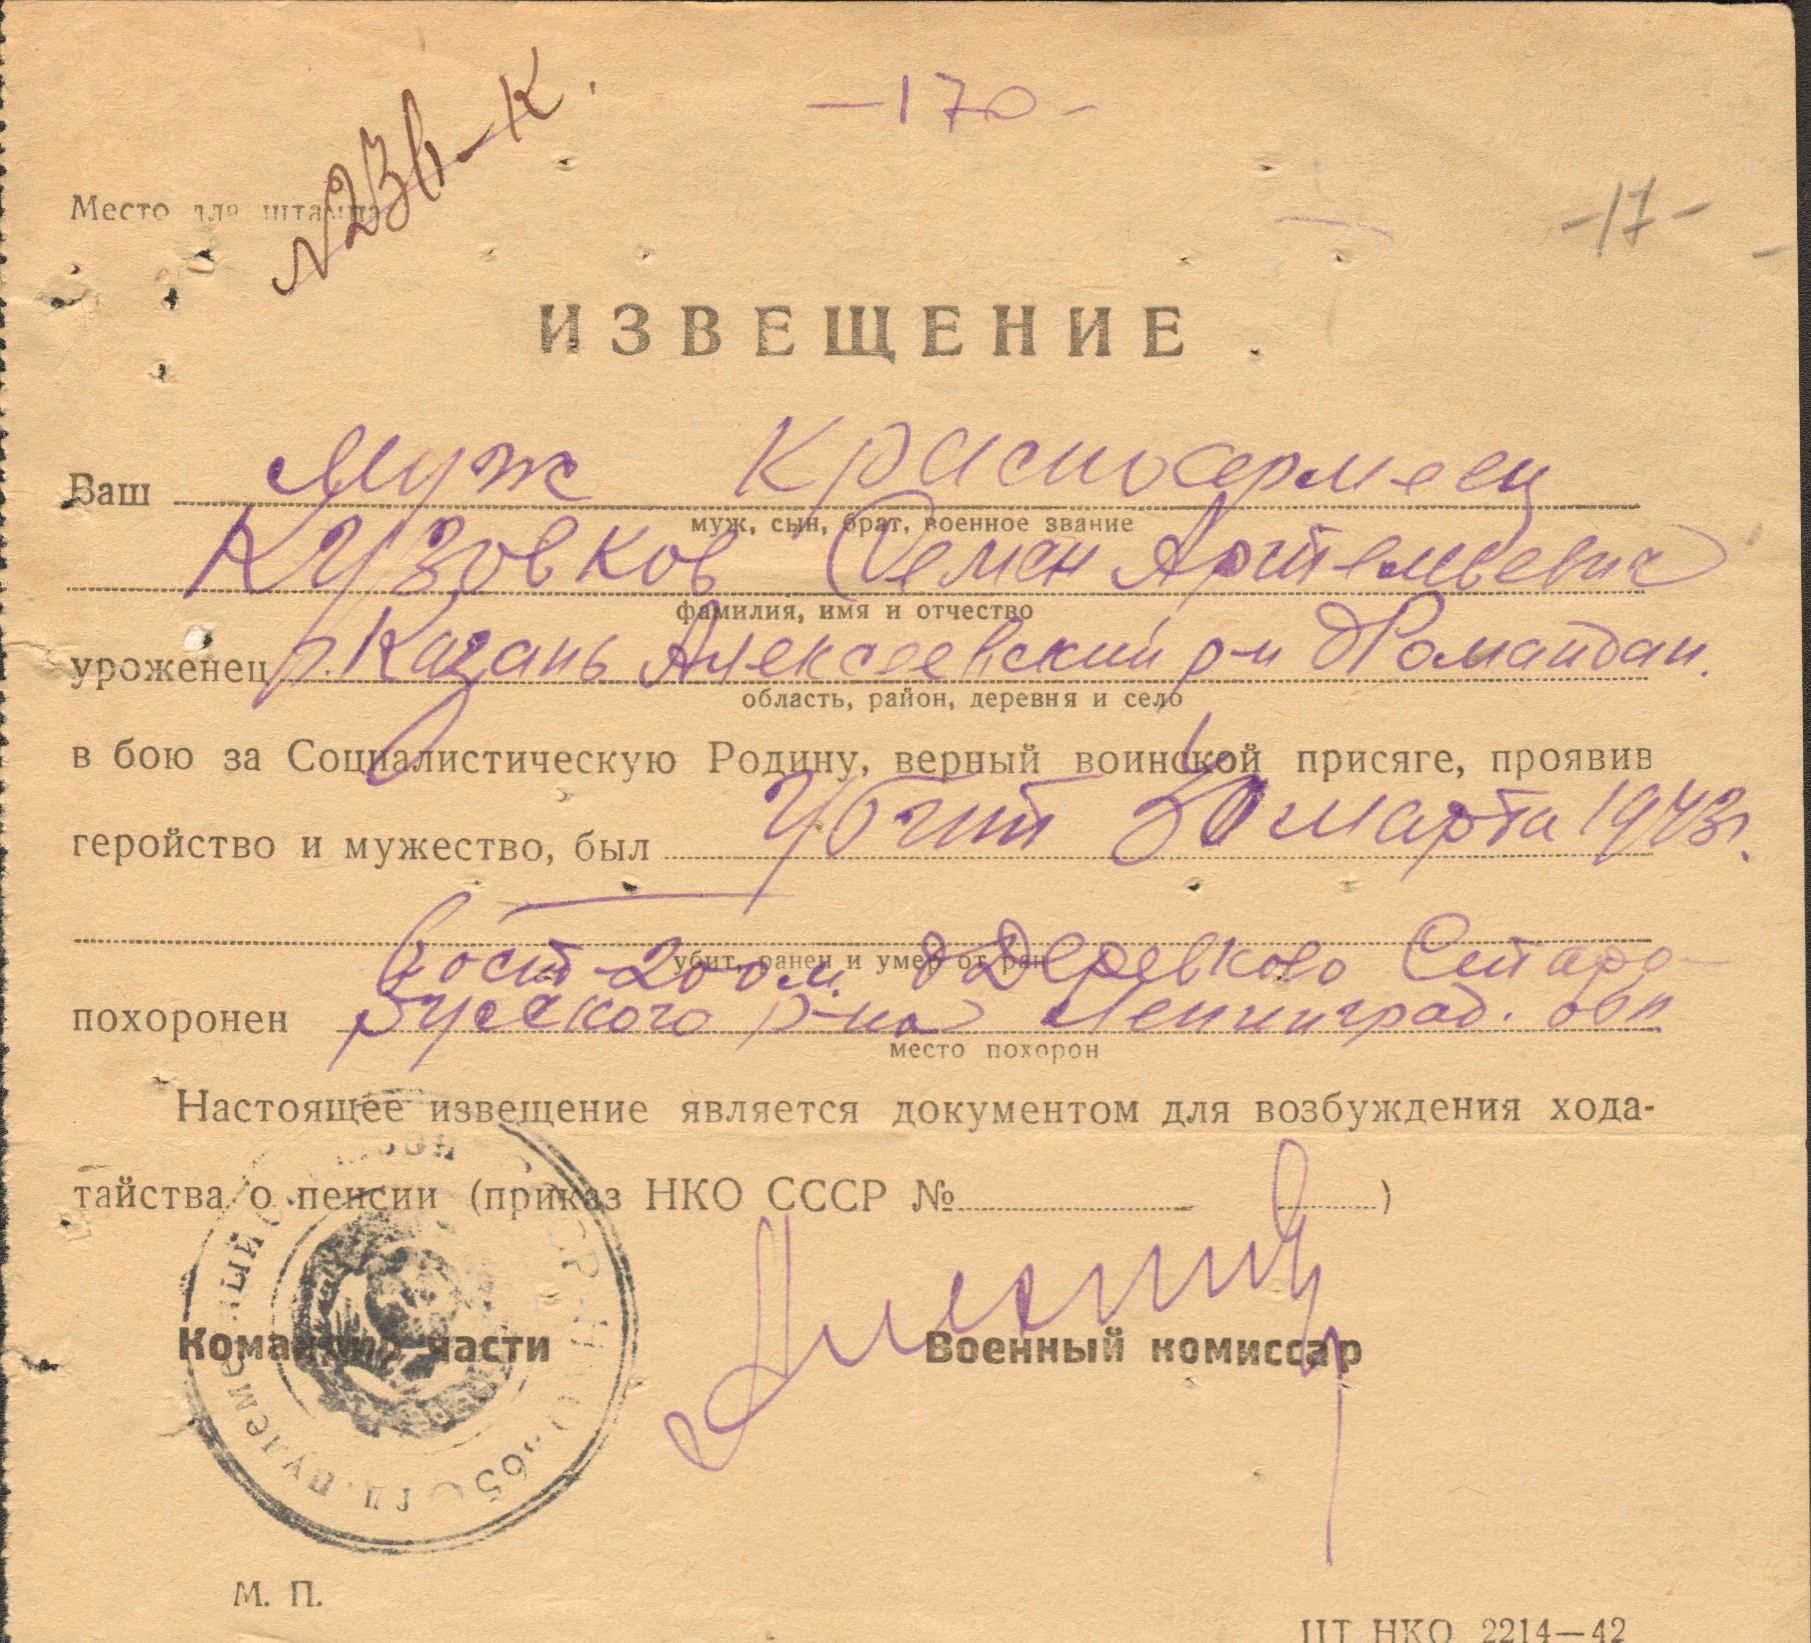 № 236-К.
-170-
Место для штампа
-17-
ИЗВЕЩЕНИЕ
Ваш муж красноармеец
муж, сын, брат, военное звание
Кузовков Семен Артемьевич
фамилия, имя и отчество
уроженец г. Казань Алексеевский р-н Ромайдан.
область, район, деревня и село
в бою за Социалистическую Родину, верный воинской присяге, проявив
геройство и мужество, был убит 30 марта 1943г.
убит, ранен и умер от ран
Вост 200 м. д Деревково Старо-
похоронен русского р-на Ленинград. обл.
место похорон
Настоящее извещение является документом для возбуждения хода-
тайства о пенсии (приказ НКО СССР № )
Командир части Военный комиссар
М. П.
ЦТ НКО 2214—42